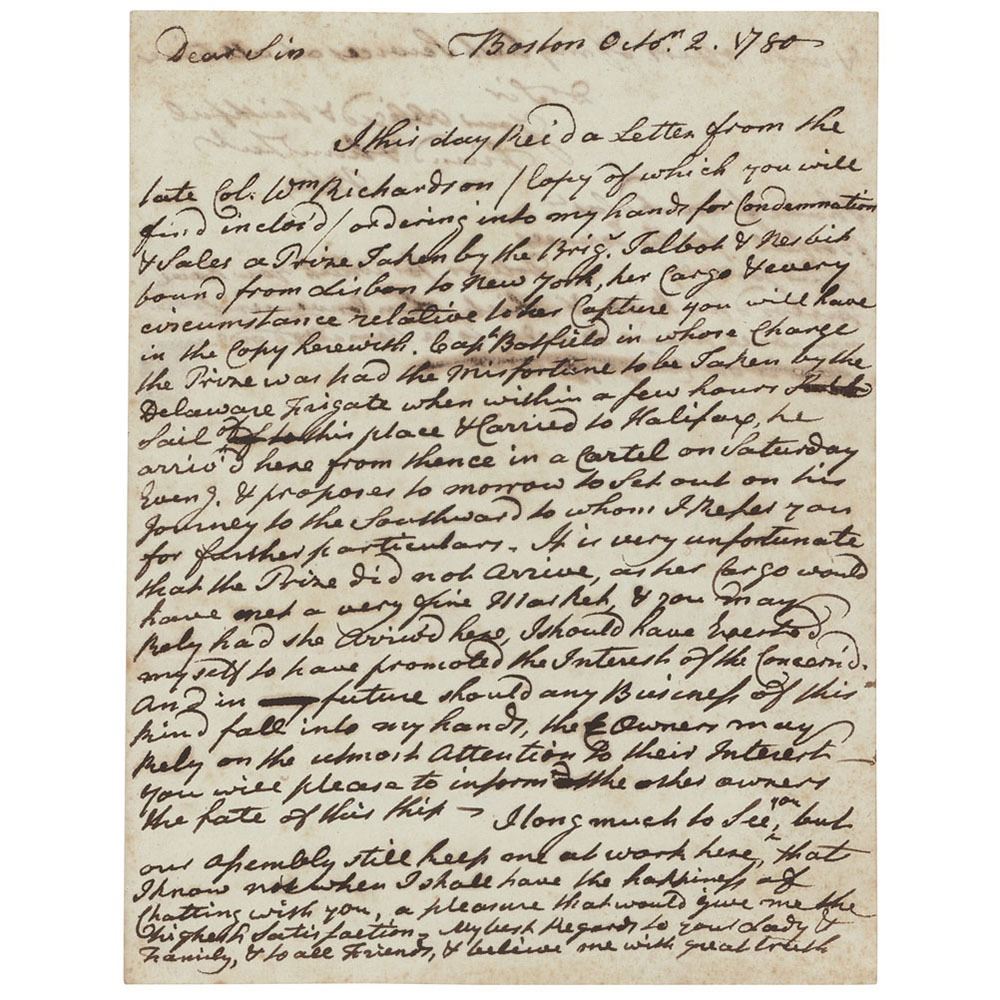 Dear Sir Boston Octor. 2. 1780
I this day Rec'd a Letter from the
late Col: Wm Richardson / Copy of which you will
find inclos'd / ordering into my hands for Condemnation
& Sales a Prize Taken by the Brigr. Talbot & Nesbit
bound from Lisbon to New York, her Cargo & every
circumstance relative to her Capture you will have
in the Copy herewith. Capt Botfield in whose Charge
the Prize was had the misfortune to be Taken by the
Delaware Frigate when within a few hours
Sail of this place & Carried to Halifax, he
arriv'd here from thence in a Cartel on Saturday
Eveng. & proposes to morrow to Set out on his
Journey to the Southward to whom I Refer you
for farther particulars - It is very unfortunate
that the Prize did not Arrive, as her Cargo would
have met a very fine Market, & you may
Rely had she Arriv'd here, I should have Exerted
myself to have promoted the Interest of the Concern'd.
And in future should any Buisness of this
kind fall into my hands, the Owners may
Rely on the utmost Attention to their Interest —
You will please to inform the other owners
the fate of this ship — I long much to See you, but
our Assembly still keep me at work here, that
I know not when I shall have the happiness of
Chatting with you, a pleasure that would give me the
highest Satisfaction - My best Regards to your Lady &
Family, & to all Friends, & believe me with great truth